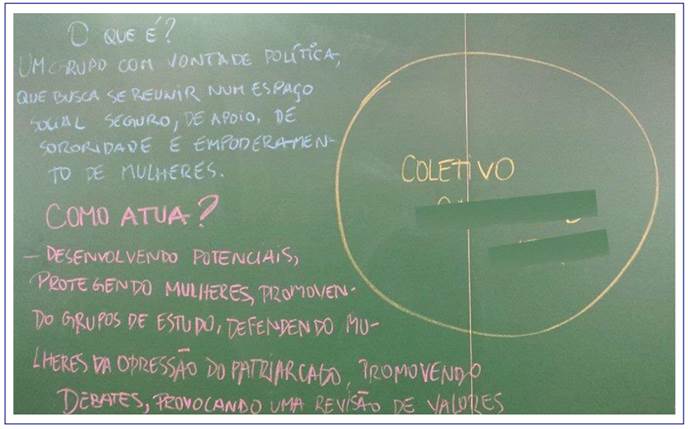 O QUE É?
UM GRUPO COM VONTADE POLÍTICA,
QUE BUSCA SE REUNIR NUM ESPAÇO
SOCIAL SEGURO, DE APOIO, DE
SORORIDADE E EMPODERAMEN-
TO DE MULHERES.
COMO ATUA?
— DESENVOLVENDO POTENCIAIS,
PROTEGENDO MULHERES, PROMOVEN-
DO GRUPOS DE ESTUDO, DEFENDENDO MU-
LHERES DA OPRESSÃO DO PATRIARCADO, PROMOVENDO
DEBATES, PROVOCANDO UMA REVISÃO DE VALORES
COLETIVO